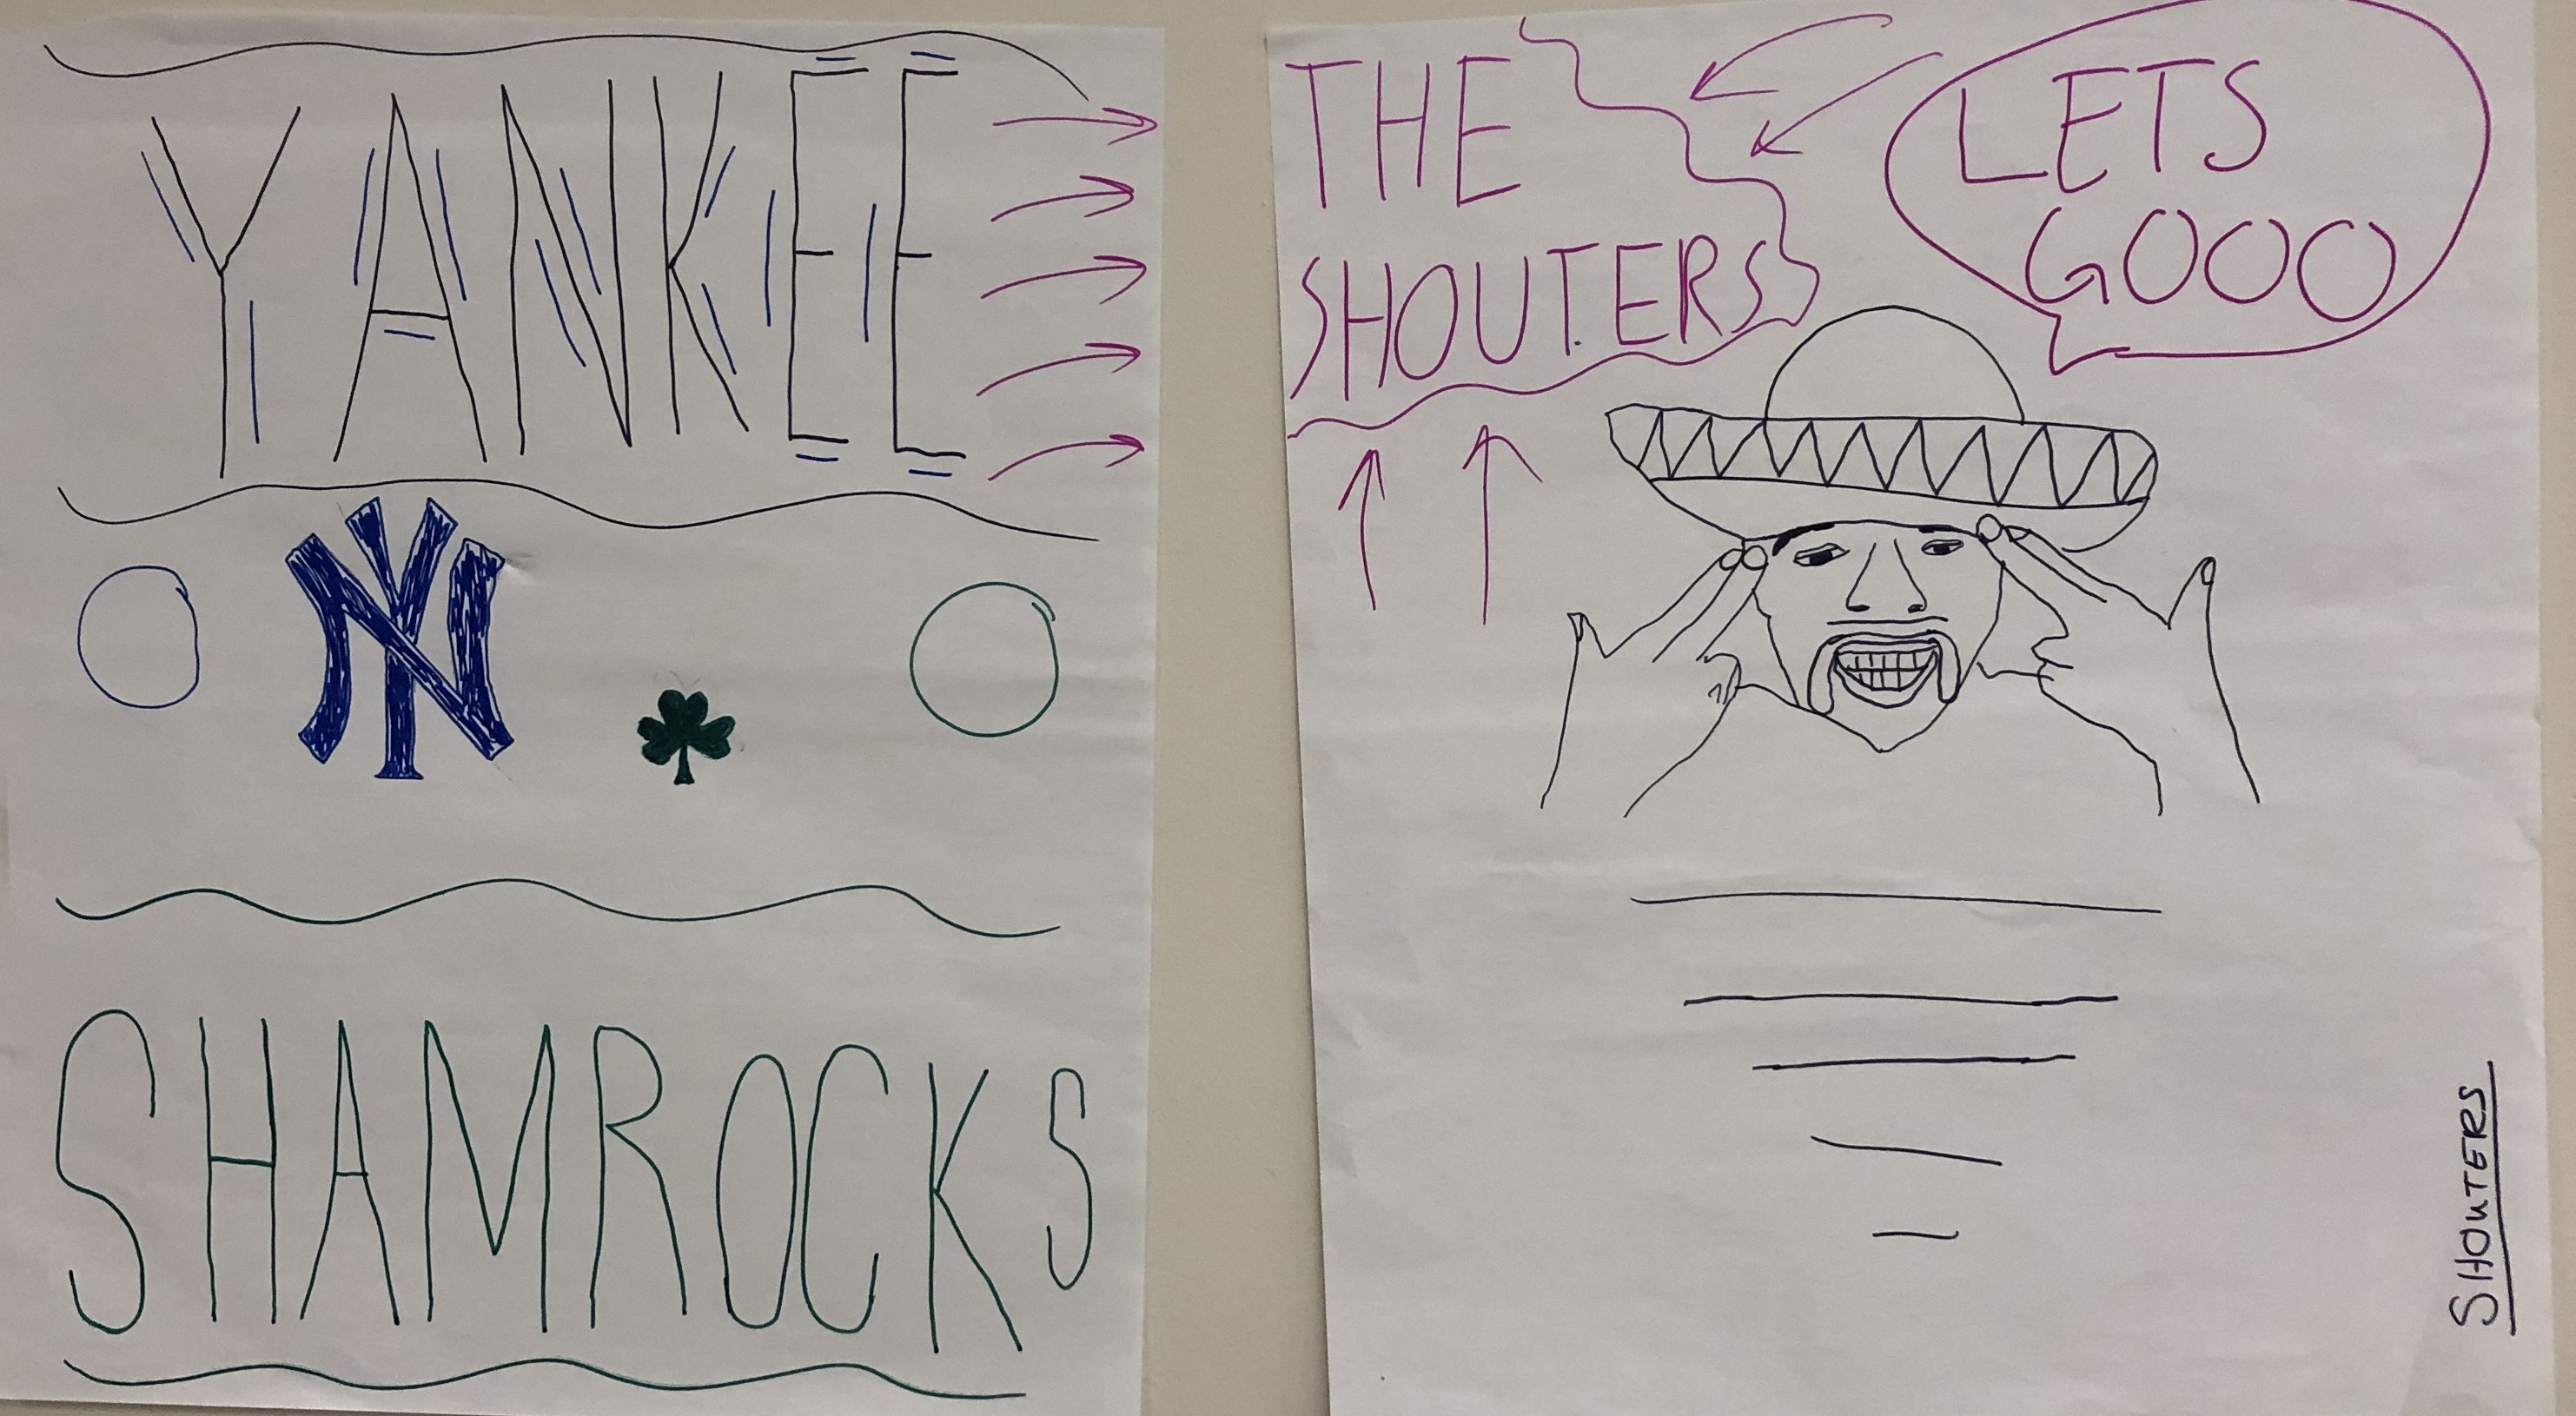 YANKEE
NY
SHAMROCKS
THE
SHOUTERS
LETS
GOOO
SHOUTERS